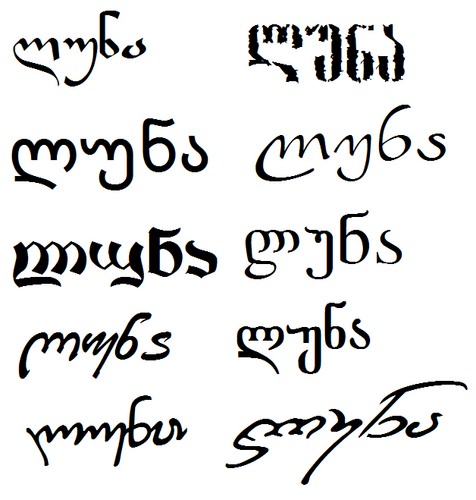 ლუნა ლუნა
ლუნა ლუნა
ლუნა ლუნა
ლუნა ლუნა
ლუნა ლუნა